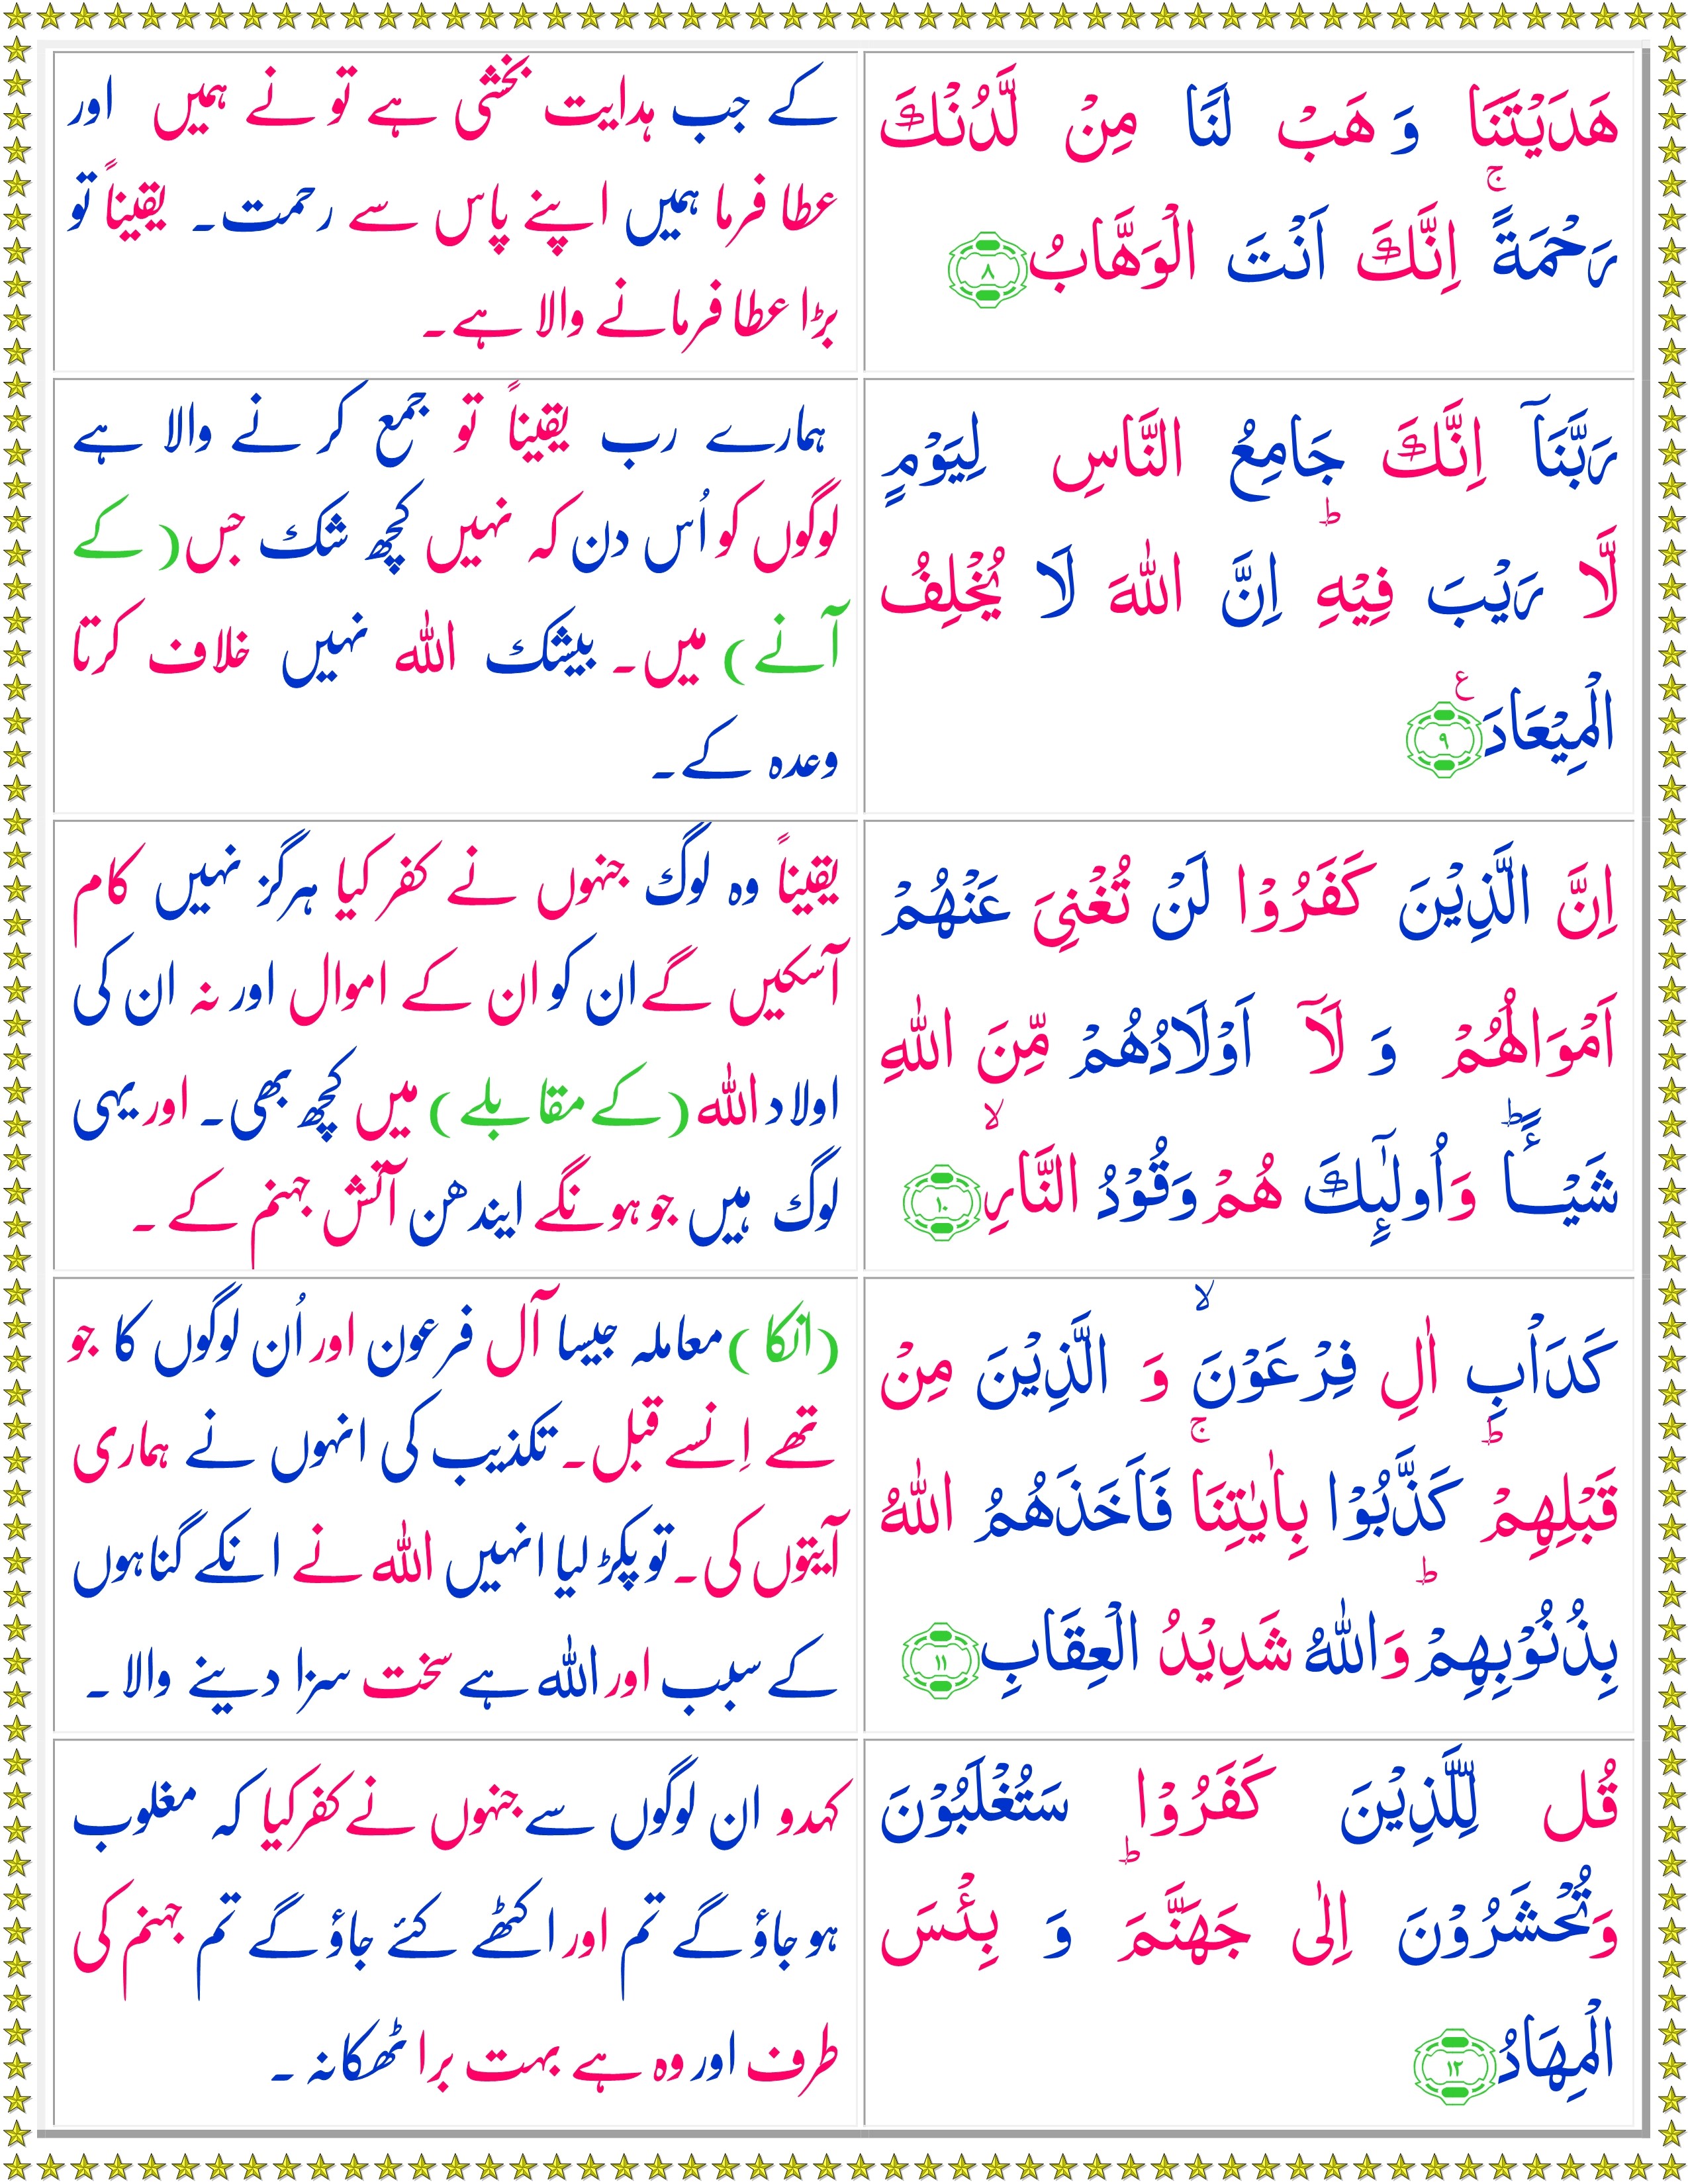 هَدَيْتَنَا وَ هَبْ لَنَا مِنْ لَّدُنْكَ
رَحْمَةً ۚ اِنَّكَ اَنْتَ الْوَهَّابُ ﴿۸﴾
کے جب ہدایت بخشی ہے تو نے ہمیں اور
عطا فرما ہمیں اپنے پاس سے رحمت۔ یقیناً تو
بڑا عطا فرمانے والا ہے۔
رَبَّنَاۤ اِنَّكَ جَامِعُ النَّاسِ لِيَوْمٍ
لَّا رَيْبَ فِيْهِ ؕ اِنَّ اللّٰهَ لَا يُخْلِفُ
الْمِيْعَادَ ﴿۹﴾ ع
ہمارے رب یقیناً تو جمع کرنے والا ہے
لوگوں کو اُس دن کہ نہیں کچھ شک جس (کے
آنے) میں۔ بیشک اللہ نہیں خلاف کرتا
وعدہ کے۔
اِنَّ الَّذِيْنَ كَفَرُوْا لَنْ تُغْنِىَ عَنْهُمْ
اَمْوَالُهُمْ وَ لَاۤ اَوْلَادُهُمْ مِّنَ اللّٰهِ
شَيْـــًٔا ؕ وَاُولٰٓئِكَ هُمْ وَقُوْدُ النَّارِ ۙ ﴿۱۰﴾
یقیناً وہ لوگ جنہوں نے کفر کیا ہرگز نہیں کام
آسکیں گے ان کو ان کے اموال اور نہ ان کی
اولاد اللہ (کے مقابلے) میں کچھ بھی۔ اور یہی
لوگ ہیں جو ہونگے ایندھن آتش جہنم کے ۔
كَدَاْبِ اٰلِ فِرْعَوْنَ ۙ وَ الَّذِيْنَ مِنْ
قَبْلِهِمْ ؕ كَذَّبُوْا بِاٰيٰتِنَا ۚ فَاَخَذَهُمُ اللّٰهُ
بِذُنُوْبِهِمْ ؕ وَاللّٰهُ شَدِيْدُ الْعِقَابِ ﴿۱۱﴾
(انکا) معاملہ جیسا آل فرعون اور اُن لوگوں کا جو
تھے اِنسے قبل۔ تکذیب کی انہوں نے ہماری
آیتوں کی۔ تو پکڑ لیا انہیں اللہ نے انکے گناہوں
کے سبب اور اللہ ہے سخت سزا دینے والا ۔
قُل لِّلَّذِيْنَ كَفَرُوْا سَتُغْلَبُوْنَ
وَتُحْشَرُوْنَ اِلٰى جَهَنَّمَ ؕ وَ بِئْسَ
الْمِهَادُ ﴿۱۲﴾
کہدو ان لوگوں سے جنہوں نے کفر کیا کہ مغلوب
ہو جاؤ گے تم اور اکٹھے کئے جاؤ گے تم جہنم کی
طرف اور وہ ہے بہت برا ٹھکانہ ۔